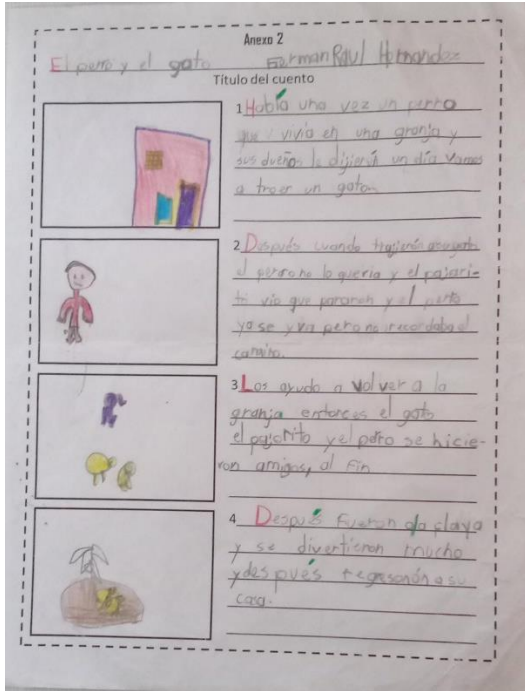 Anexo 2
El perro y el gato German Raul Hernandez
Título del cuento
1 Había una vez un perro
que vivia en una granja y
sus dueños le dijierón un día vamos
a traer un gato
2 Después cuando trajierón
el perro no lo queria y el pajari-
to vio que pararon y el perro
ya se y va pero no recordaba el
camino.
3 Los ayudo a volver a la
granja entonces el gato
el pajarito y el perro se hicie-
ron amigos, al fin
4 Después fueron a la playa
y se divertieron mucho
y después regresarón a su
casa.